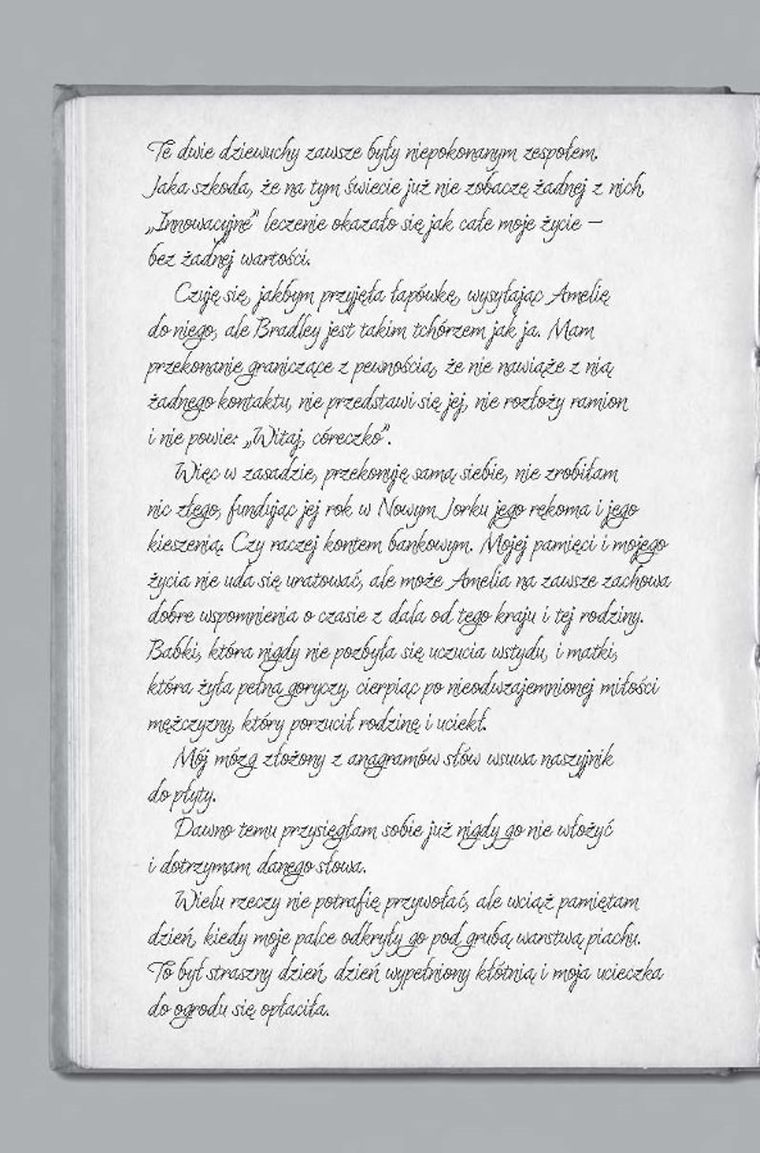 Te dwie dziewuchy zawsze były niepokonanym zespołem.
Jaka szkoda, że na tym świecie już nie zobaczę żadnej z nich.
„Innowacyjne” leczenie okazało się jak całe moje życie –
bez żadnej wartości.
Czuję się, jakbym przyjęła łapówkę, wysyłając Amelię
do niego, ale Bradley jest takim tchórzem jak ja. Mam
przekonanie graniczące z pewnością, że nie nawiąże z nią
żadnego kontaktu, nie przedstawi się jej, nie rozłoży ramion
i nie powie: „Witaj, córeczko”.
Więc w zasadzie, przekonuję samą siebie, nie zrobiłam
nic złego, fundując jej rok w Nowym Jorku jego rękoma i jego
kieszenią. Czy raczej kontem bankowym. Mojej pamięci i mojego
życia nie uda się uratować, ale może Amelia na zawsze zachowa
dobre wspomnienia o czasie z dala od tego kraju i tej rodziny.
Babki, która nigdy nie pozbyła się uczucia wstydu, i matki,
która żyła pełna goryczy, cierpiąc po nieodwzajemnionej miłości
mężczyzny, który porzucił rodzinę i uciekł.
Mój mózg złożony z anagramów słów wsuwa naszyjnik
do płyty.
Dawno temu przysięgłam sobie już nigdy go nie włożyć
i dotrzymam danego słowa.
Wielu rzeczy nie potrafię przywołać, ale wciąż pamiętam
dzień, kiedy moje palce odkryły go pod grubą warstwą piachu.
To był straszny dzień, dzień wypełniony kłótnią i moja ucieczka
do ogrodu się opłaciła.